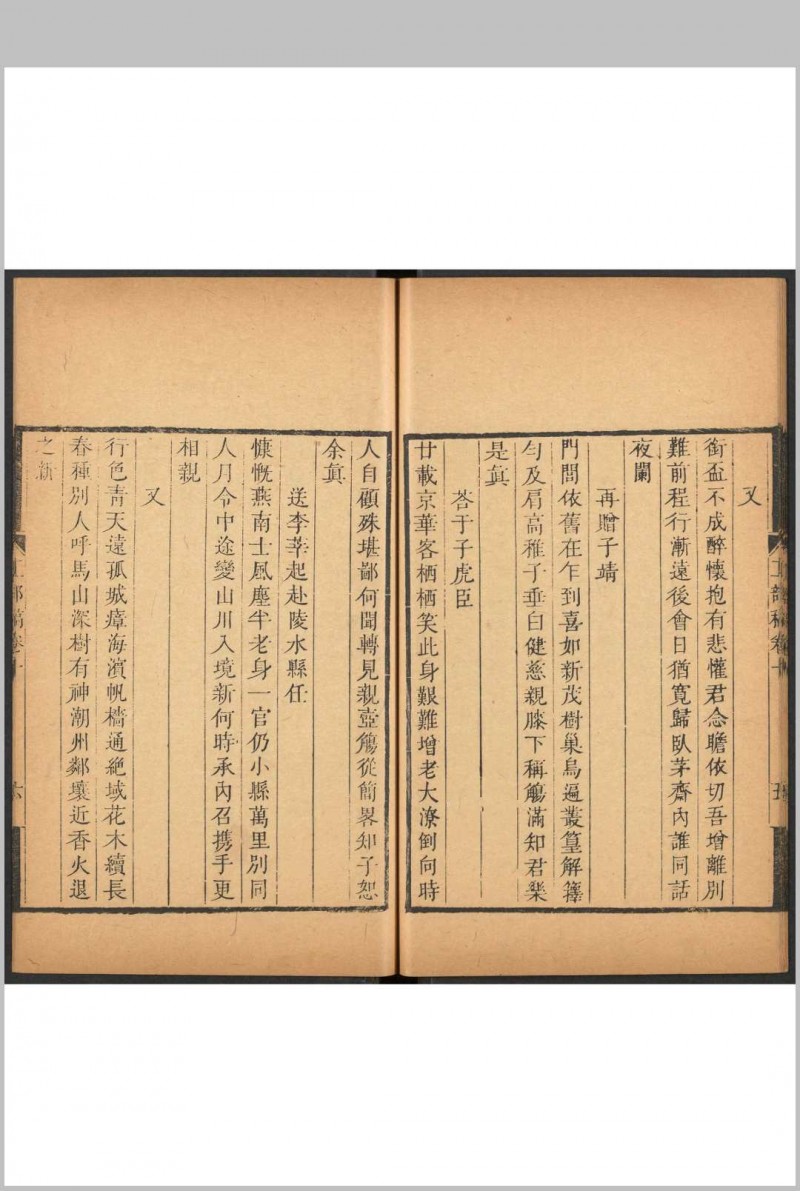 又
銜盃不成醉懷抱有悲懽君念瞻依切吾增離別
難前程行漸遠後會日猶寬歸臥茅齋內誰同話
夜闌
再贈子靖
門閭依舊在乍到喜如新茂樹巢烏遍叢篁解籜
勻及肩高稚子垂白健慈親膝下稱觴滿知君樂
是真
答于子虎臣
廿載京華客栖栖笑此身艱難增老大潦倒向時
人自顧殊堪鄙何聞轉見親壺觴從簡畧知子恕
余真
送李莘起赴陵水縣任
慷慨燕南士風塵半老身一官仍小縣萬里別同
人月令中途變山川入境新何時承內召携手更
相親
又
行色靑天遠孤城瘴海濱帆檣通絕域花木續長
春種別人呼馬山深樹有神潮州鄰壤近香火退
之新